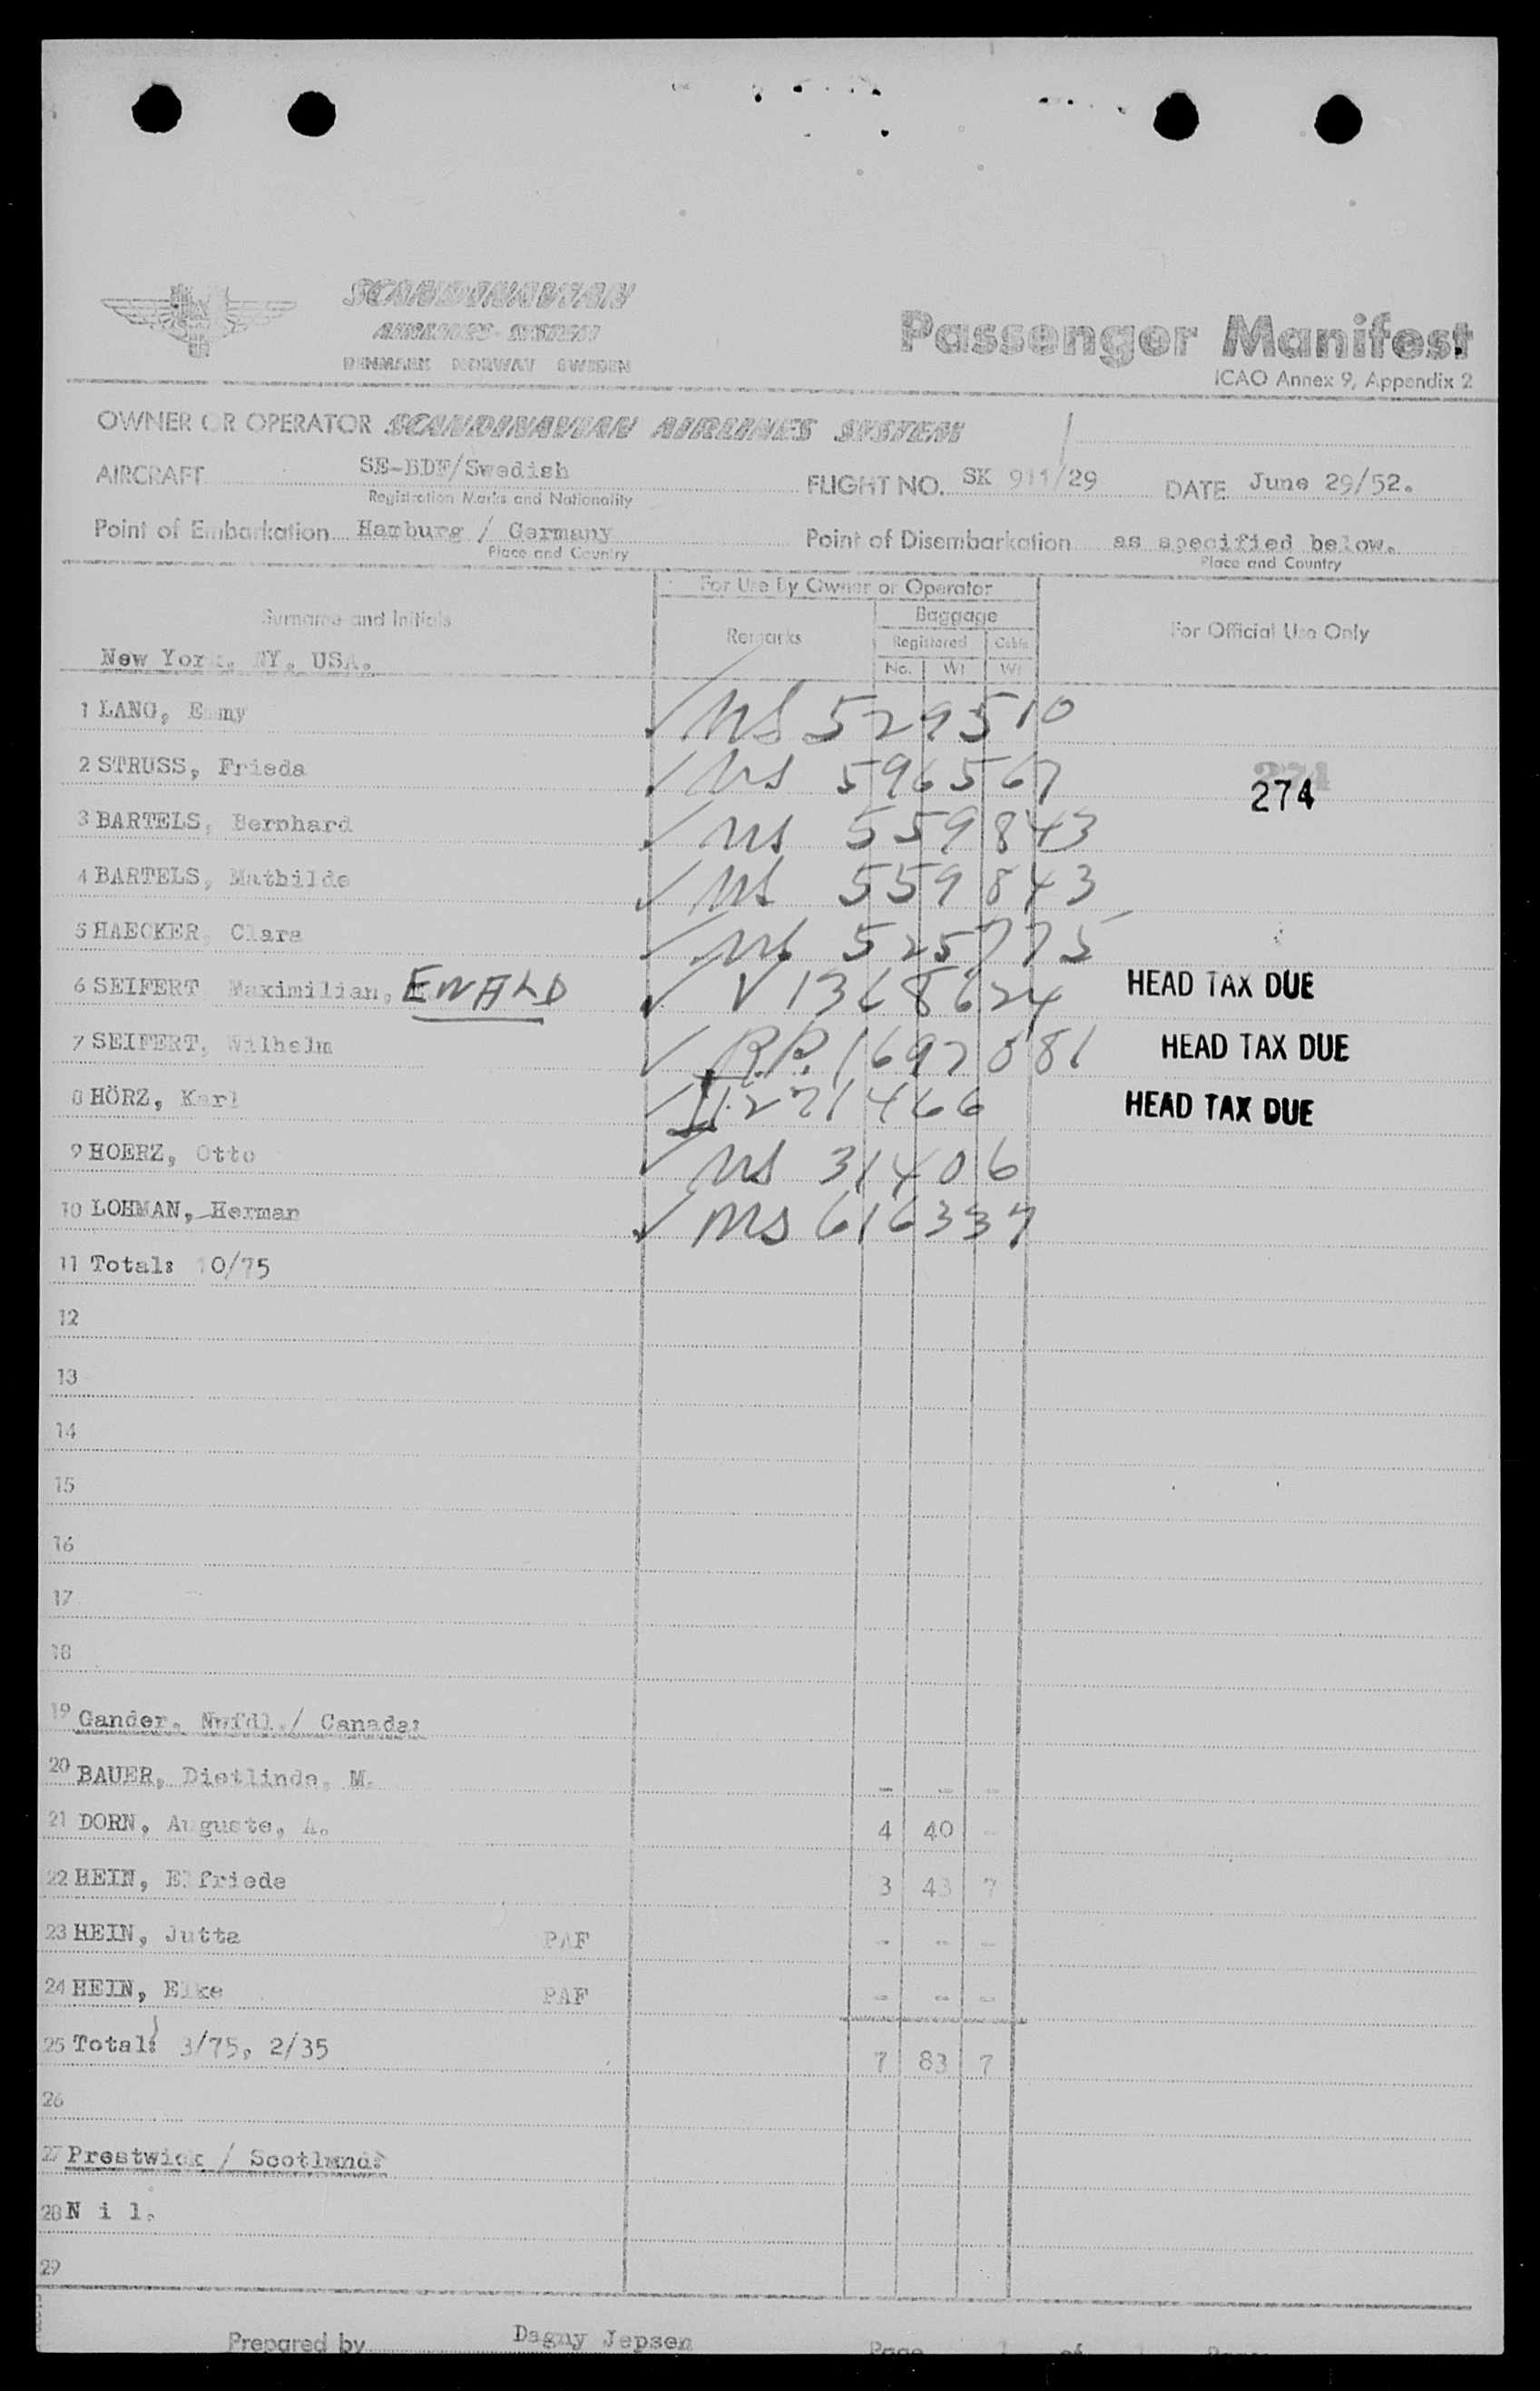 SCANDINAVIAN
AIRLINES SYSTEM
DENMARK NORWAY SWEDEN
Passenger Manifest
ICAO Annex 9, Appendix 2
OWNER OR OPERATOR SCANDINAVIAN AIRLINES SYSTEM
AIRCRAFT SE-BDF/Swedish FLIGHT NO. SK 911/29 DATE June 29/52.
Registration Marks and Nationality
Point of Embarkation Hamburg / Germany Point of Disembarkation as specified below.
Place and Country Place and Country
For Use By Owner or Operator
Surname and Initials Remarks Baggage For Official Use Only
Registered Cabin
No. Wt Wt
New York, NY, USA.
1 LANG, Emmy ✓ NS 529510
2 STRUSS, Frieda ✓ NS 596567 274
3 BARTELS, Bernhard ✓ NS 559843
4 BARTELS, Mathilde ✓ NS 559843
5 HAECKER, Clara ✓ NS 525775
6 SEIFERT Maximilian, EWALD ✓ V 1368624 HEAD TAX DUE
7 SEIFERT, Wilhelm ✓ R.P. 1697081 HEAD TAX DUE
8 HÖRZ, Karl ✓ 271466 HEAD TAX DUE
9 HOERZ, Otto ✓ NS 31406
10 LOHMAN, Herman ✓ NS 616337
11 Total: 10/75
12
13
14
15
16
17
18
19 Gander, Nwfdl./ Canada:
20 BAUER, Dietlinde, M. - - -
21 DORN, Auguste, A. 4 40 -
22 HEIN, Elfriede 3 43 7
23 HEIN, Jutta PAF - - -
24 HEIN, Elke PAF - - -
25 Total: 3/75, 2/35 7 83 7
26
27 Prestwick / Scotland:
28 N i l.
29
Prepared by Dagny Jepsen Page 1 of